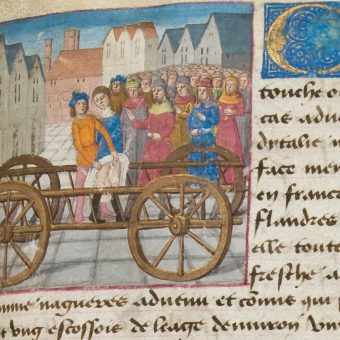 touche ou
cas adue
dytalie n
face men
en franc
flandres
elle toute
fresche a
nagueres aduenu et come qui p
ung escossois de leage denuiron